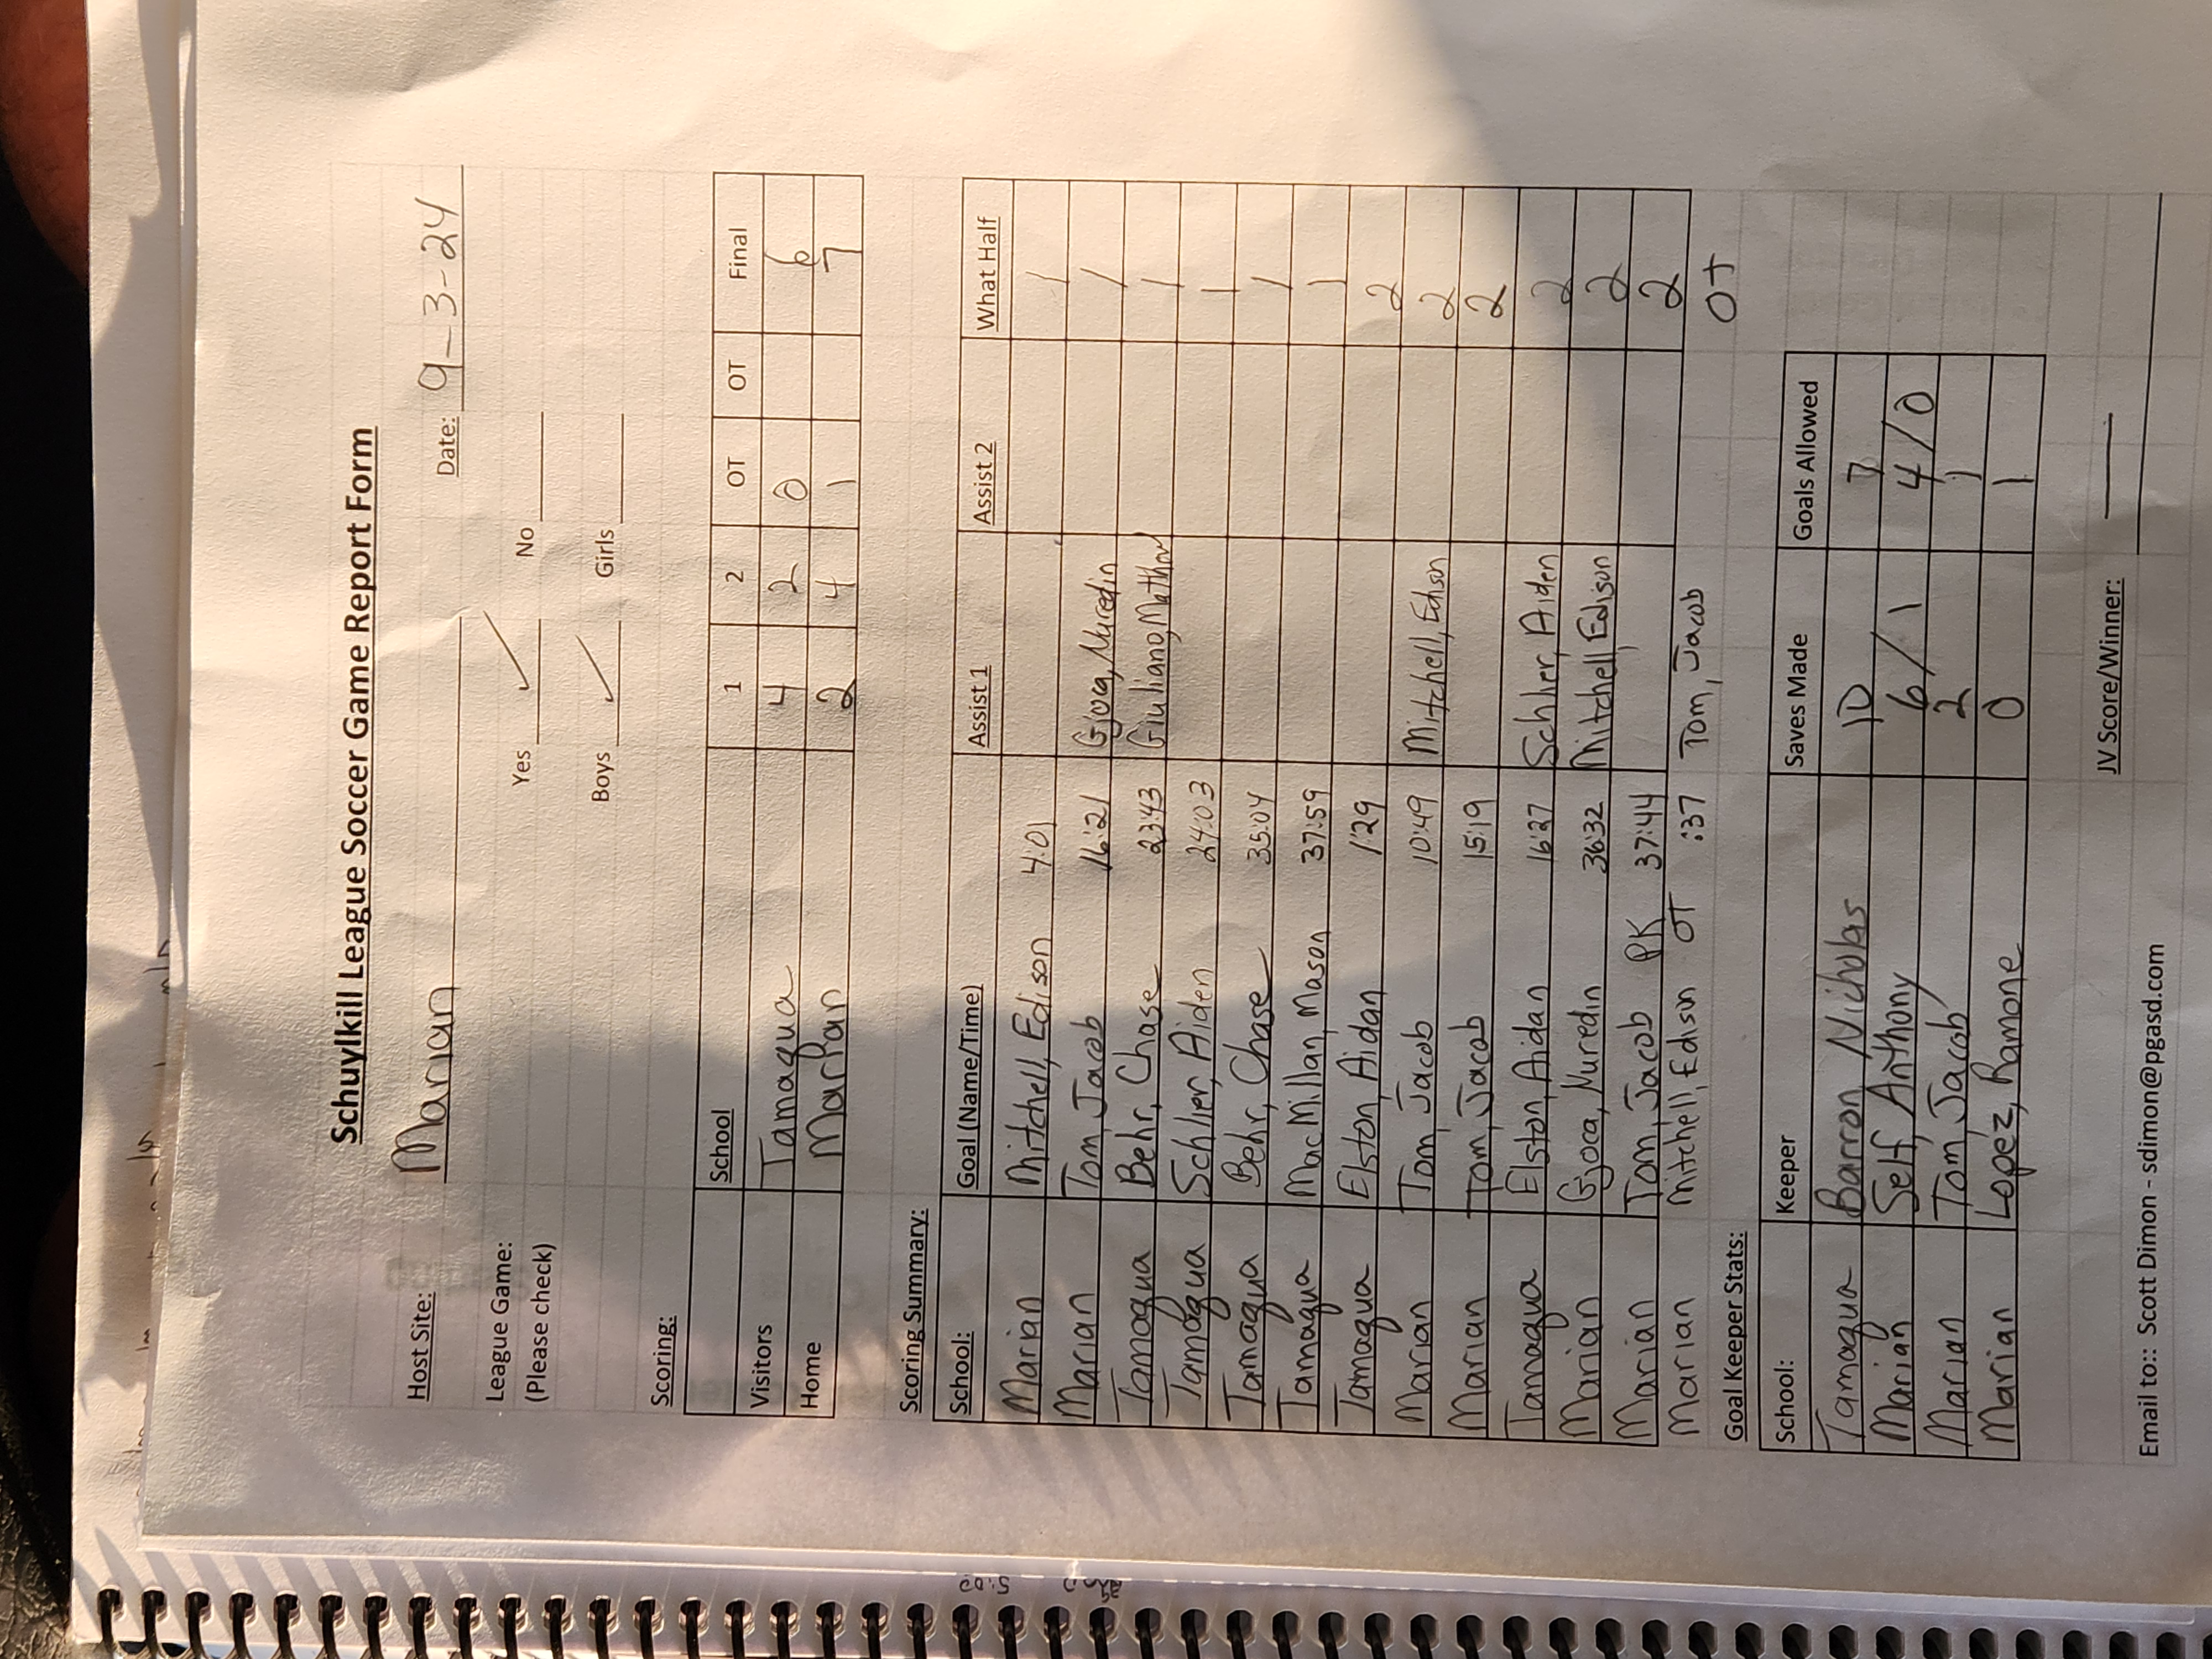 Schuylkill League Soccer Game Report Form
Host Site: Marian Date: 9-3-24
League Game: Yes ✓ No
(Please check)
Boys ✓ Girls
Scoring:
School 1 2 OT OT Final
Visitors Tamaqua 4 2 0 6
Home Marian 2 4 1 7
Scoring Summary:
School: Goal (Name/Time) Assist 1 Assist 2 What Half
Marian Mitchell, Edison 4:01 1
Marian Tom, Jacob 16:21 Gjoca, Nuredin 1
Tamaqua Behr, Chase 23:43 Giuliano, Matthew 1
Tamaqua Schlier, Aiden 24:03 1
Tamaqua Behr, Chase 35:04 1
Tamaqua MacMillan, Mason 37:59 1
Tamaqua Elston, Aidan 1:29 2
Marian Tom, Jacob 10:49 Mitchell, Edison 2
Marian Tom, Jacob 15:19 2
Tamaqua Elston, Aidan 16:27 Schlier, Aiden 2
Marian Gjoca, Nuredin 36:32 Mitchell, Edison 2
Marian Tom, Jacob PK 37:44 2
Marian Mitchell, Edison OT :37 Tom, Jacob OT
Goal Keeper Stats:
School: Keeper Saves Made Goals Allowed
Tamaqua Barron, Nicholas 10 7
Marian Self, Anthony 6/1 4/0
Marian Tom, Jacob 2 1
Marian Lopez, Ramone 0 1
JV Score/Winner:
Email to:: Scott Dimon - sdimon@pgasd.com